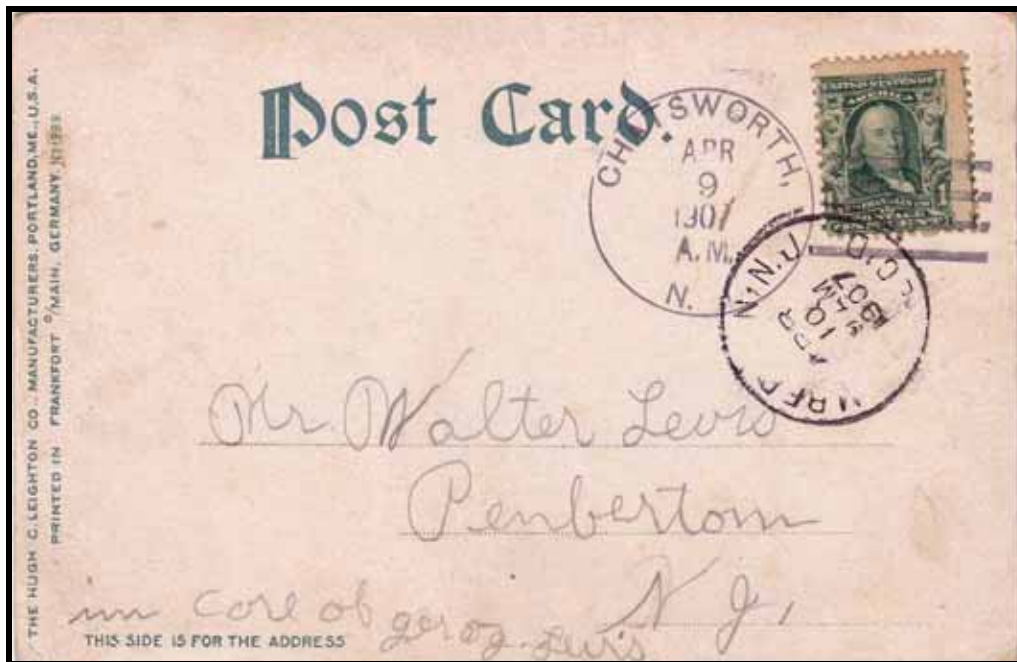 THE HUGH C. LEIGHTON CO., MANUFACTURERS, PORTLAND, ME., U.S.A.
PRINTED IN FRANKFORT O/MAIN, GERMANY.
Post Card.
CHATSWORTH,
APR
9
1907
A.M.
N.
UNITED STATES OF
AMERICA
N.J.
APR
10
AM
1907
REC'D
Mr Walter Lewis
Penbertom
N J,
in care of gerog. Lewis
THIS SIDE IS FOR THE ADDRESS